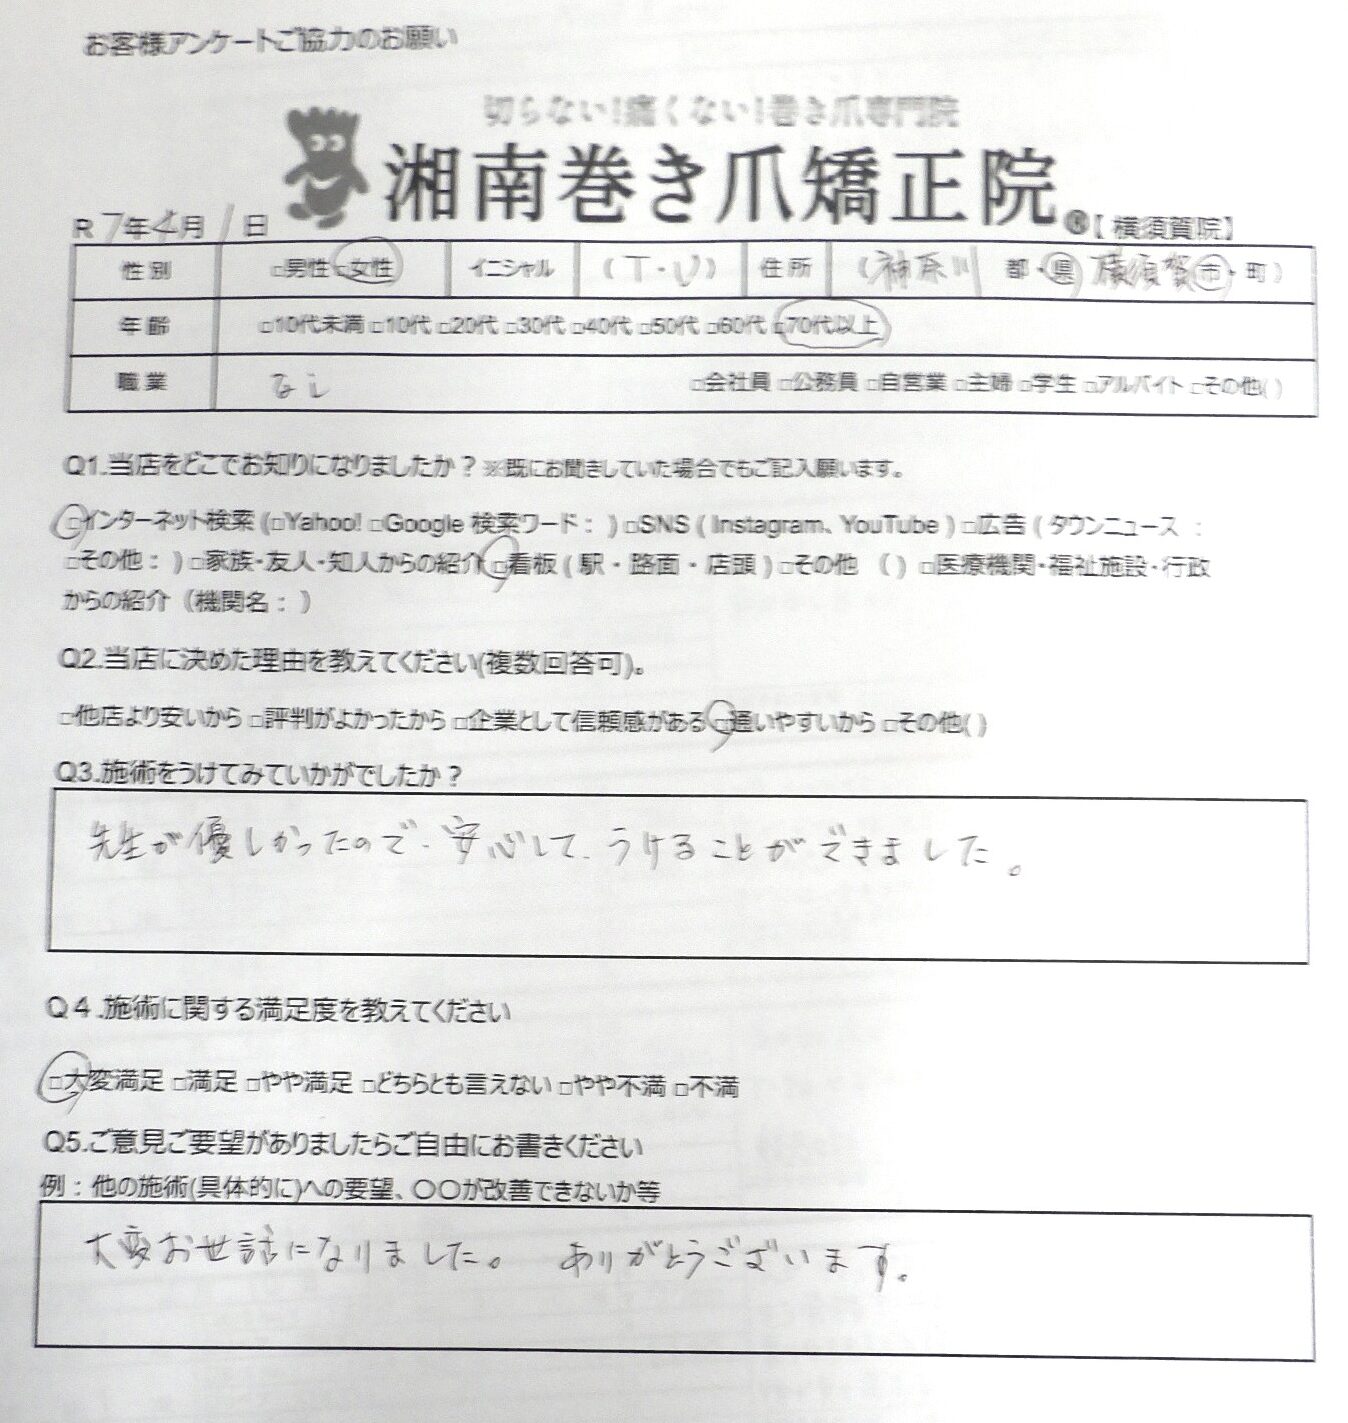 お客様アンケートご協力のお願い
切らない!痛くない!巻き爪専門院
湘南巻き爪矯正院®【横須賀院】
R 7年4月1日
性別 □男性 □女性 イニシャル (T・U) 住所 (神奈川 都・県 横須賀 市・町)
年齢 □10代未満 □10代 □20代 □30代 □40代 □50代 □60代 □70代以上
職業 なし □会社員 □公務員 □自営業 □主婦 □学生 □アルバイト □その他( )
Q1.当店をどこでお知りになりましたか？※既にお聞きしていた場合でもご記入願います。
□インターネット検索 (□Yahoo! □Google 検索ワード： ) □SNS ( Instagram、YouTube ) □広告 ( タウンニュース ：
□その他： ) □家族・友人・知人からの紹介 □看板 ( 駅 ・ 路面 ・ 店頭 ) □その他 ( ) □医療機関・福祉施設・行政
からの紹介（機関名： ）
Q2.当店に決めた理由を教えてください(複数回答可)。
□他店より安いから □評判がよかったから □企業として信頼感がある □通いやすいから □その他( )
Q3.施術をうけてみていかがでしたか？
先生が優しかったので、安心して、うけることができました。
Q４.施術に関する満足度を教えてください
□大変満足 □満足 □やや満足 □どちらとも言えない □やや不満 □不満
Q5.ご意見ご要望がありましたらご自由にお書きください
例：他の施術(具体的に)への要望、〇〇が改善できないか等
大変お世話になりました。 ありがとうございます。